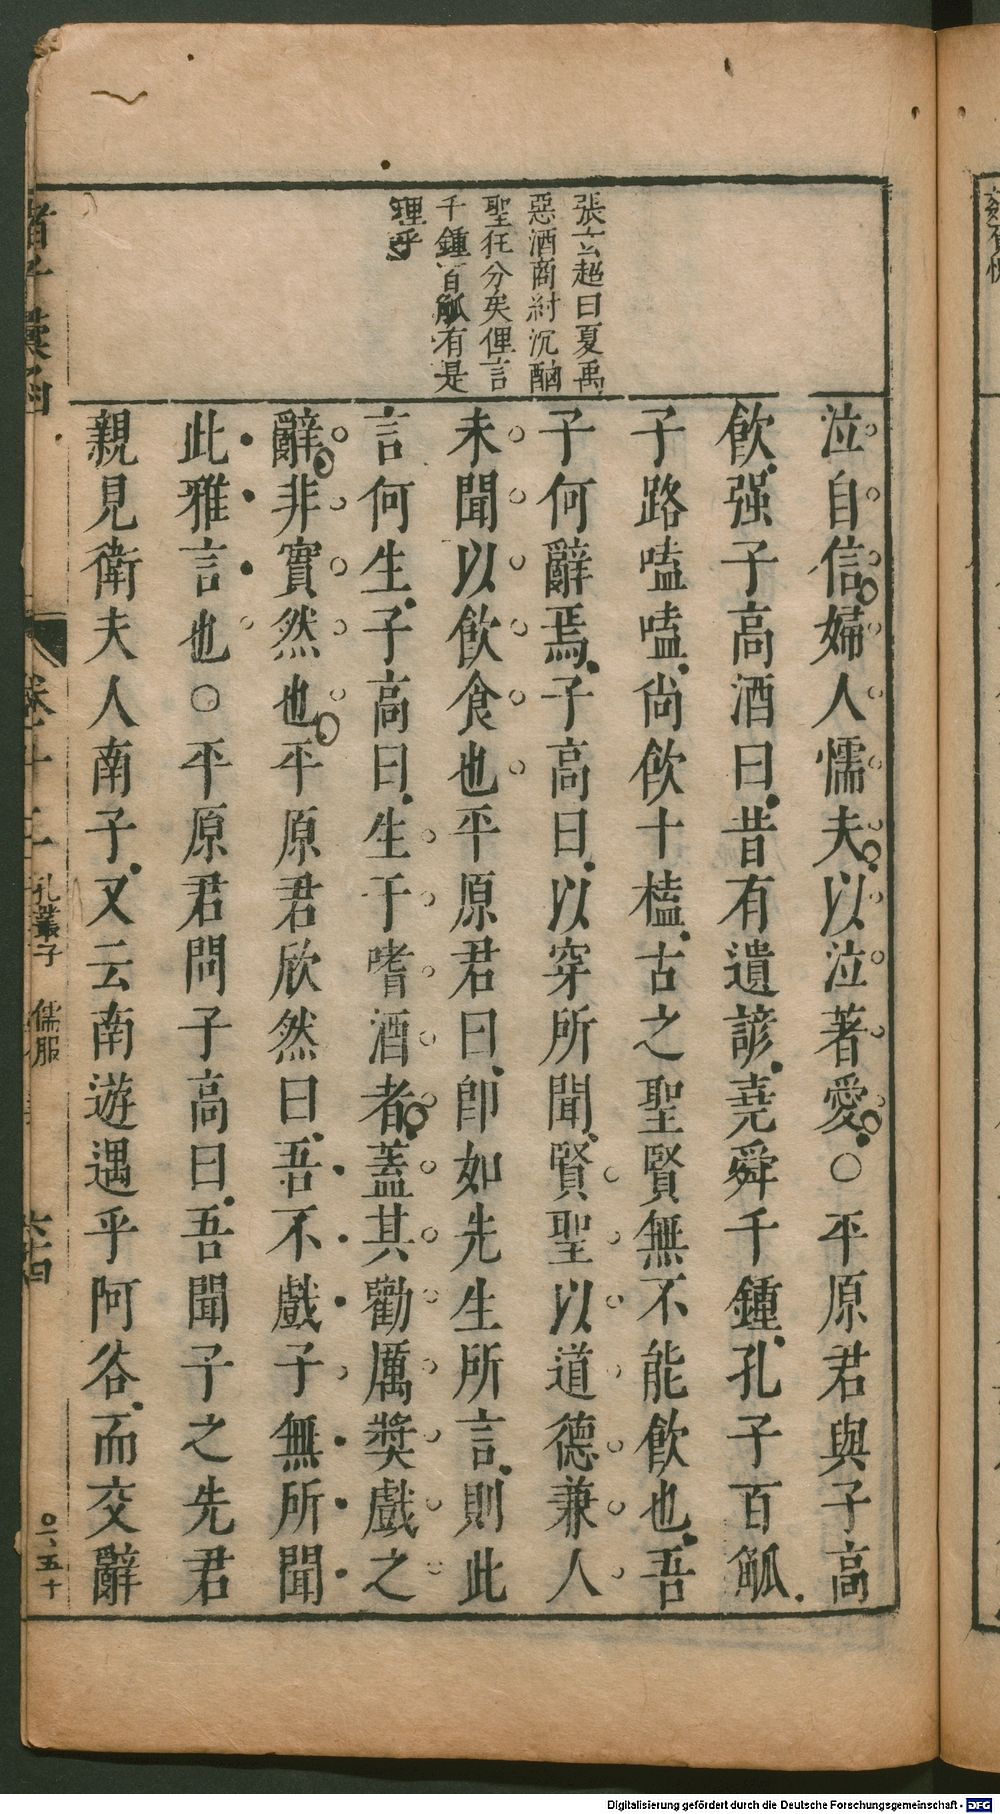 張玄超曰夏禹
惡酒商紂沉酗
聖狂分矣俚言
千鍾百觚有是
理乎
泣自信婦人懦夫以泣著愛○平原君與子高
飲强子高酒曰昔有遺諺堯舜千鍾孔子百觚
子路嗑嗑尚飲十榼古之聖賢無不能飲也吾
子何辭焉子高曰以穿所聞賢聖以道德兼人
未聞以飲食也平原君曰卽如先生所言則此
言何生子高曰生于嗜酒者蓋其勸厲奬戲之
辭非實然也平原君欣然曰吾不戲子無所聞
此雅言也○平原君問子高曰吾聞子之先君
親見衛夫人南子又云南遊遇乎阿谷而交辭
孔叢子 儒服
Digitalisierung gefördert durch die Deutsche Forschungsgemeinschaft - DFG